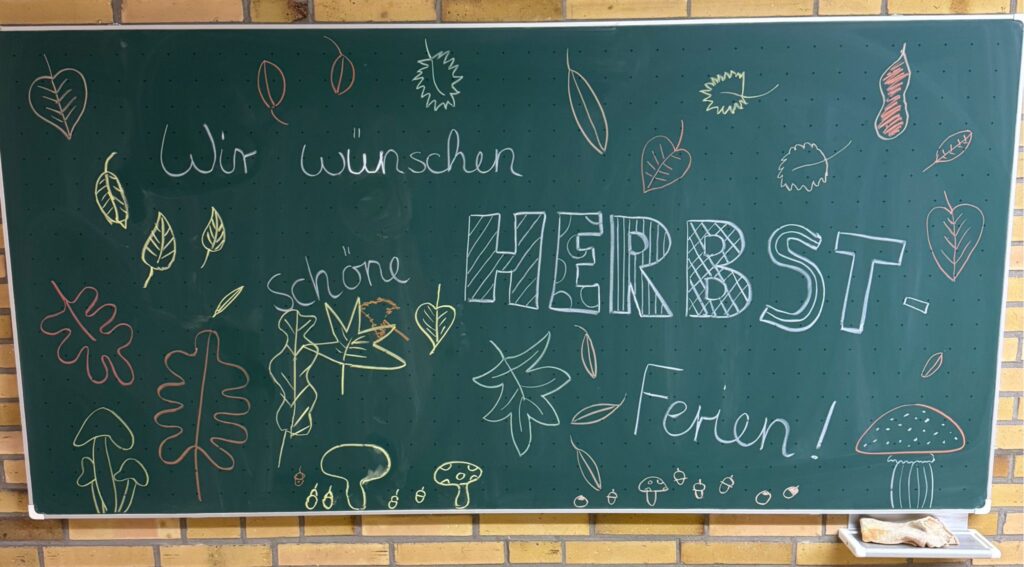 Wir wünschen
schöne
HERBST-
Ferien!